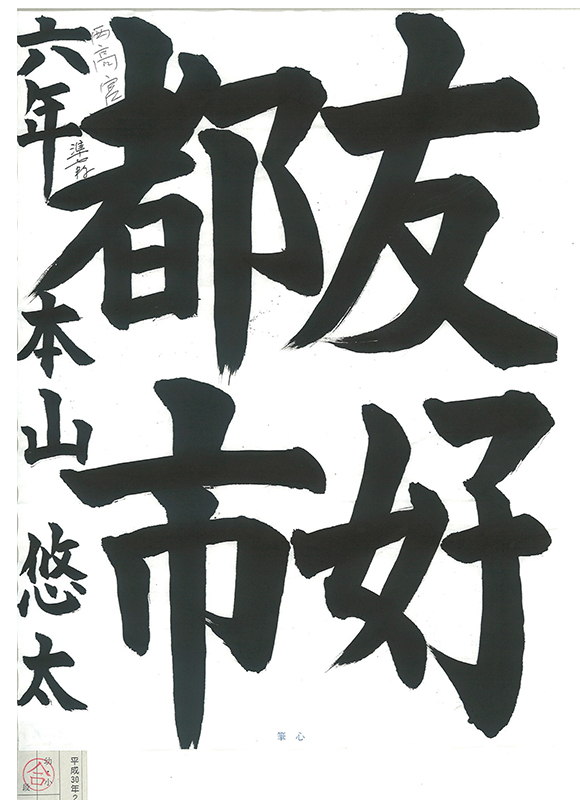 友好
都市
六年 本山 悠太
西高宮
準
心筆
平成30年2
幼小
段
合